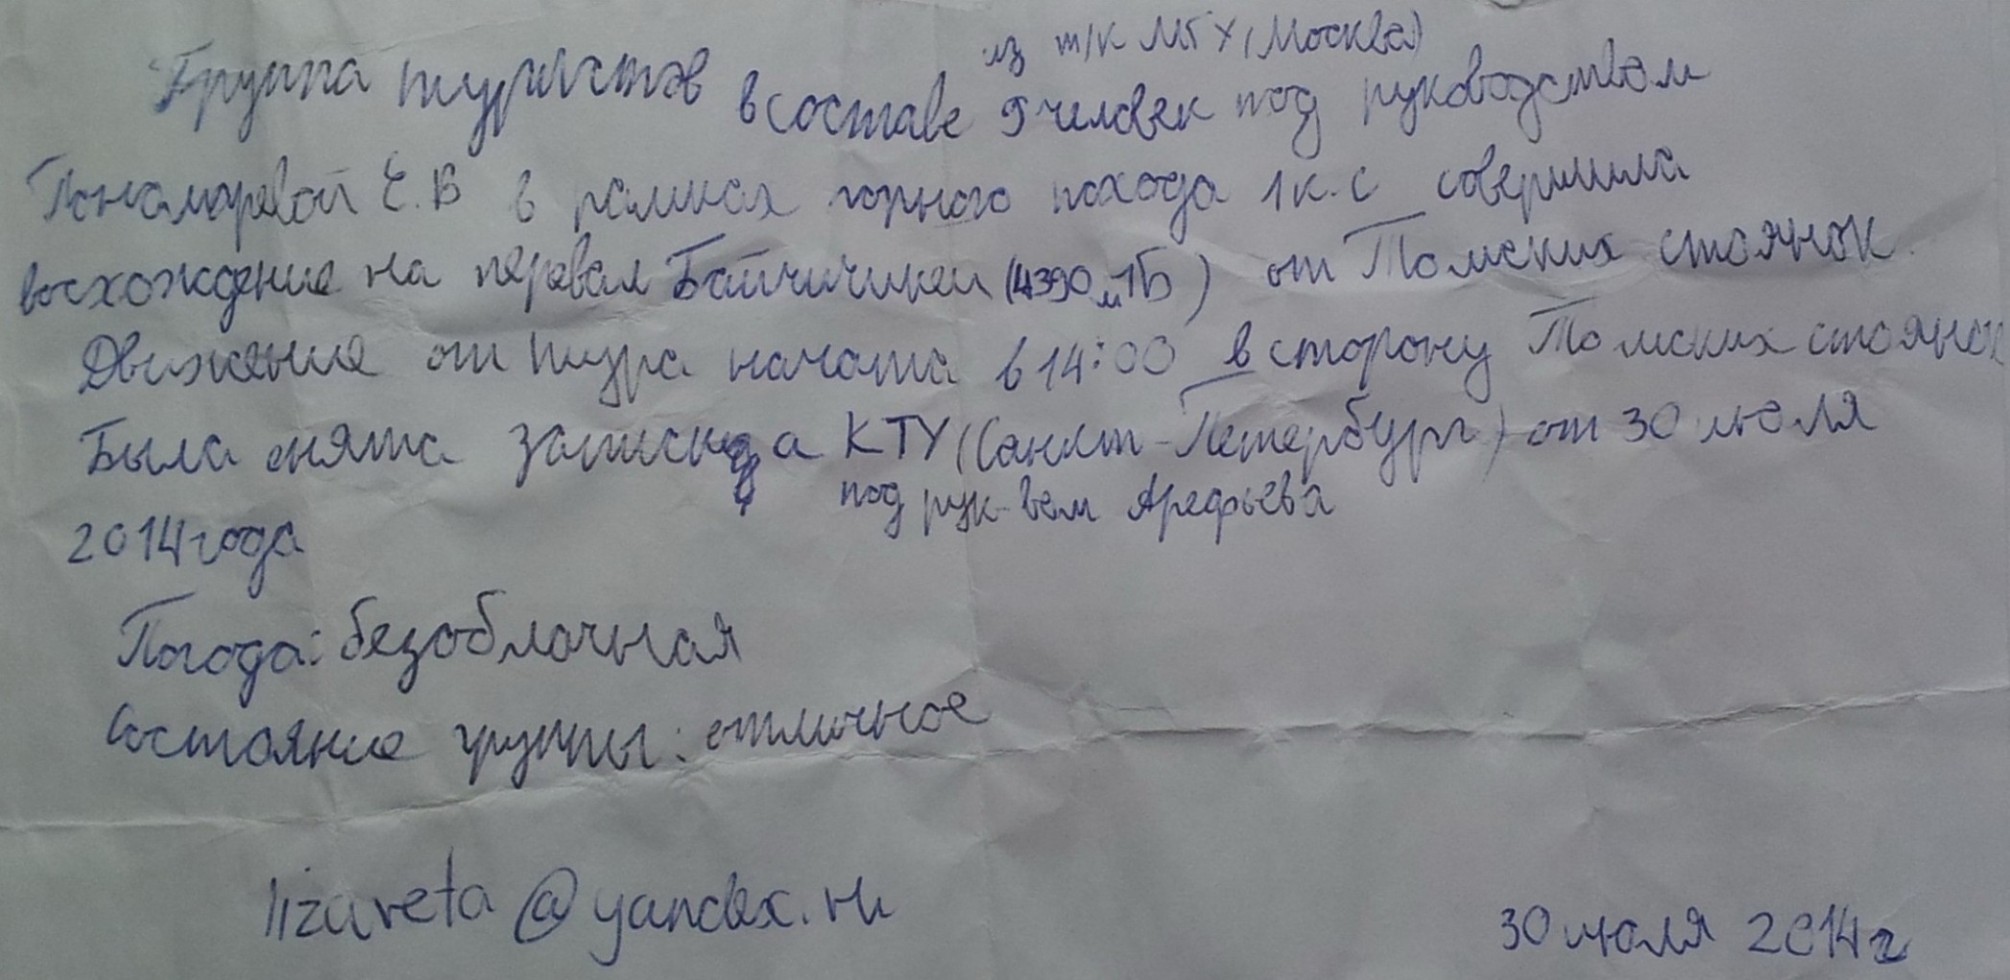 из т/к МГУ (Москва)
Группа туристов в составе 9 человек под руководством
Пономаревой Е.В в рамках горного похода 1 к.с совершила
восхождение на перевал Байчичикей (4390 м 1Б) от Томских стоянок.
Движение от тура начата в 14:00 в сторону Томских стоянок
Была снята записка КТУ (Санкт-Петербург) от 30 июля
под рук-вем Арефьева
2014 года
Погода: безоблачная
Состояние группы: отличное
lizaveta@yandex.ru
30 июля 2014 г